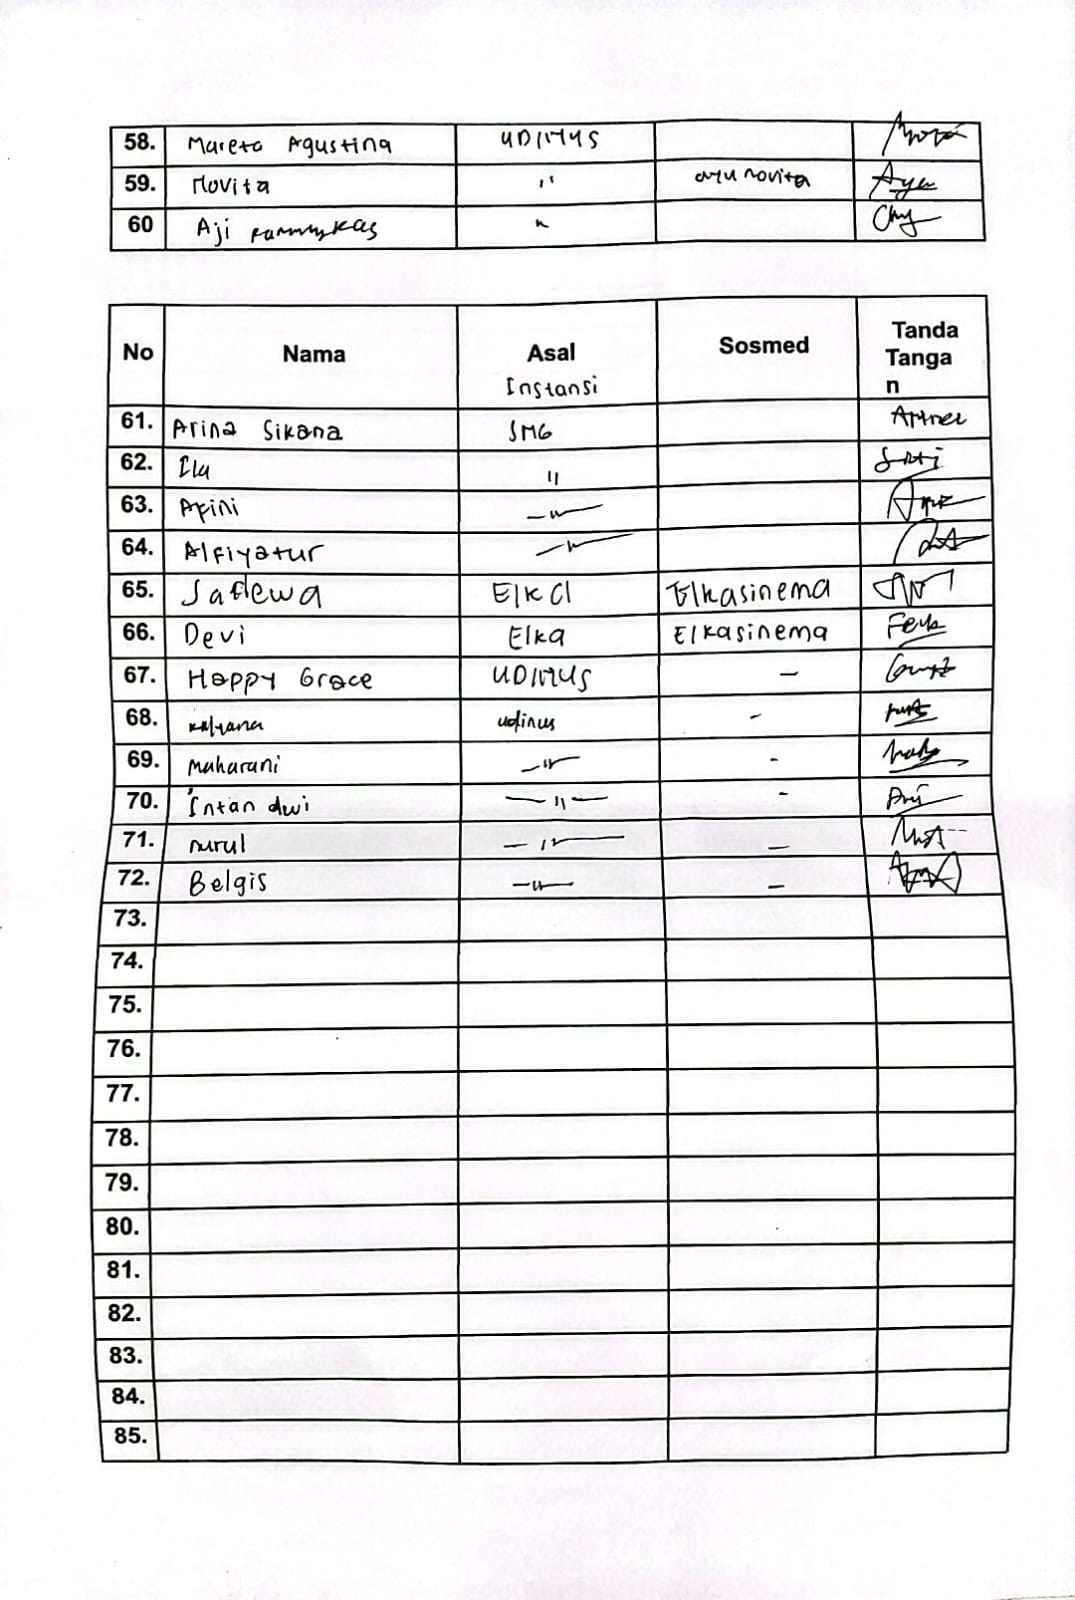 58. Mareta Agustina UDINUS
59. Novita " ayunovita
60 Aji "
No Nama Asal Instansi Sosmed Tanda Tangan
61. Arina Sikana SMG
62. Ila "
63. Afini —"—
64. Alfiyatur —"—
65. Sadewa Elka Elkasinema
66. Devi Elka Elkasinema
67. Happy Grace UDINUS -
68. udinus -
69. Maharani —"— -
70. Intan dwi —"— -
71. nurul —"— -
72. Belgis —"— -
73.
74.
75.
76.
77.
78.
79.
80.
81.
82.
83.
84.
85.